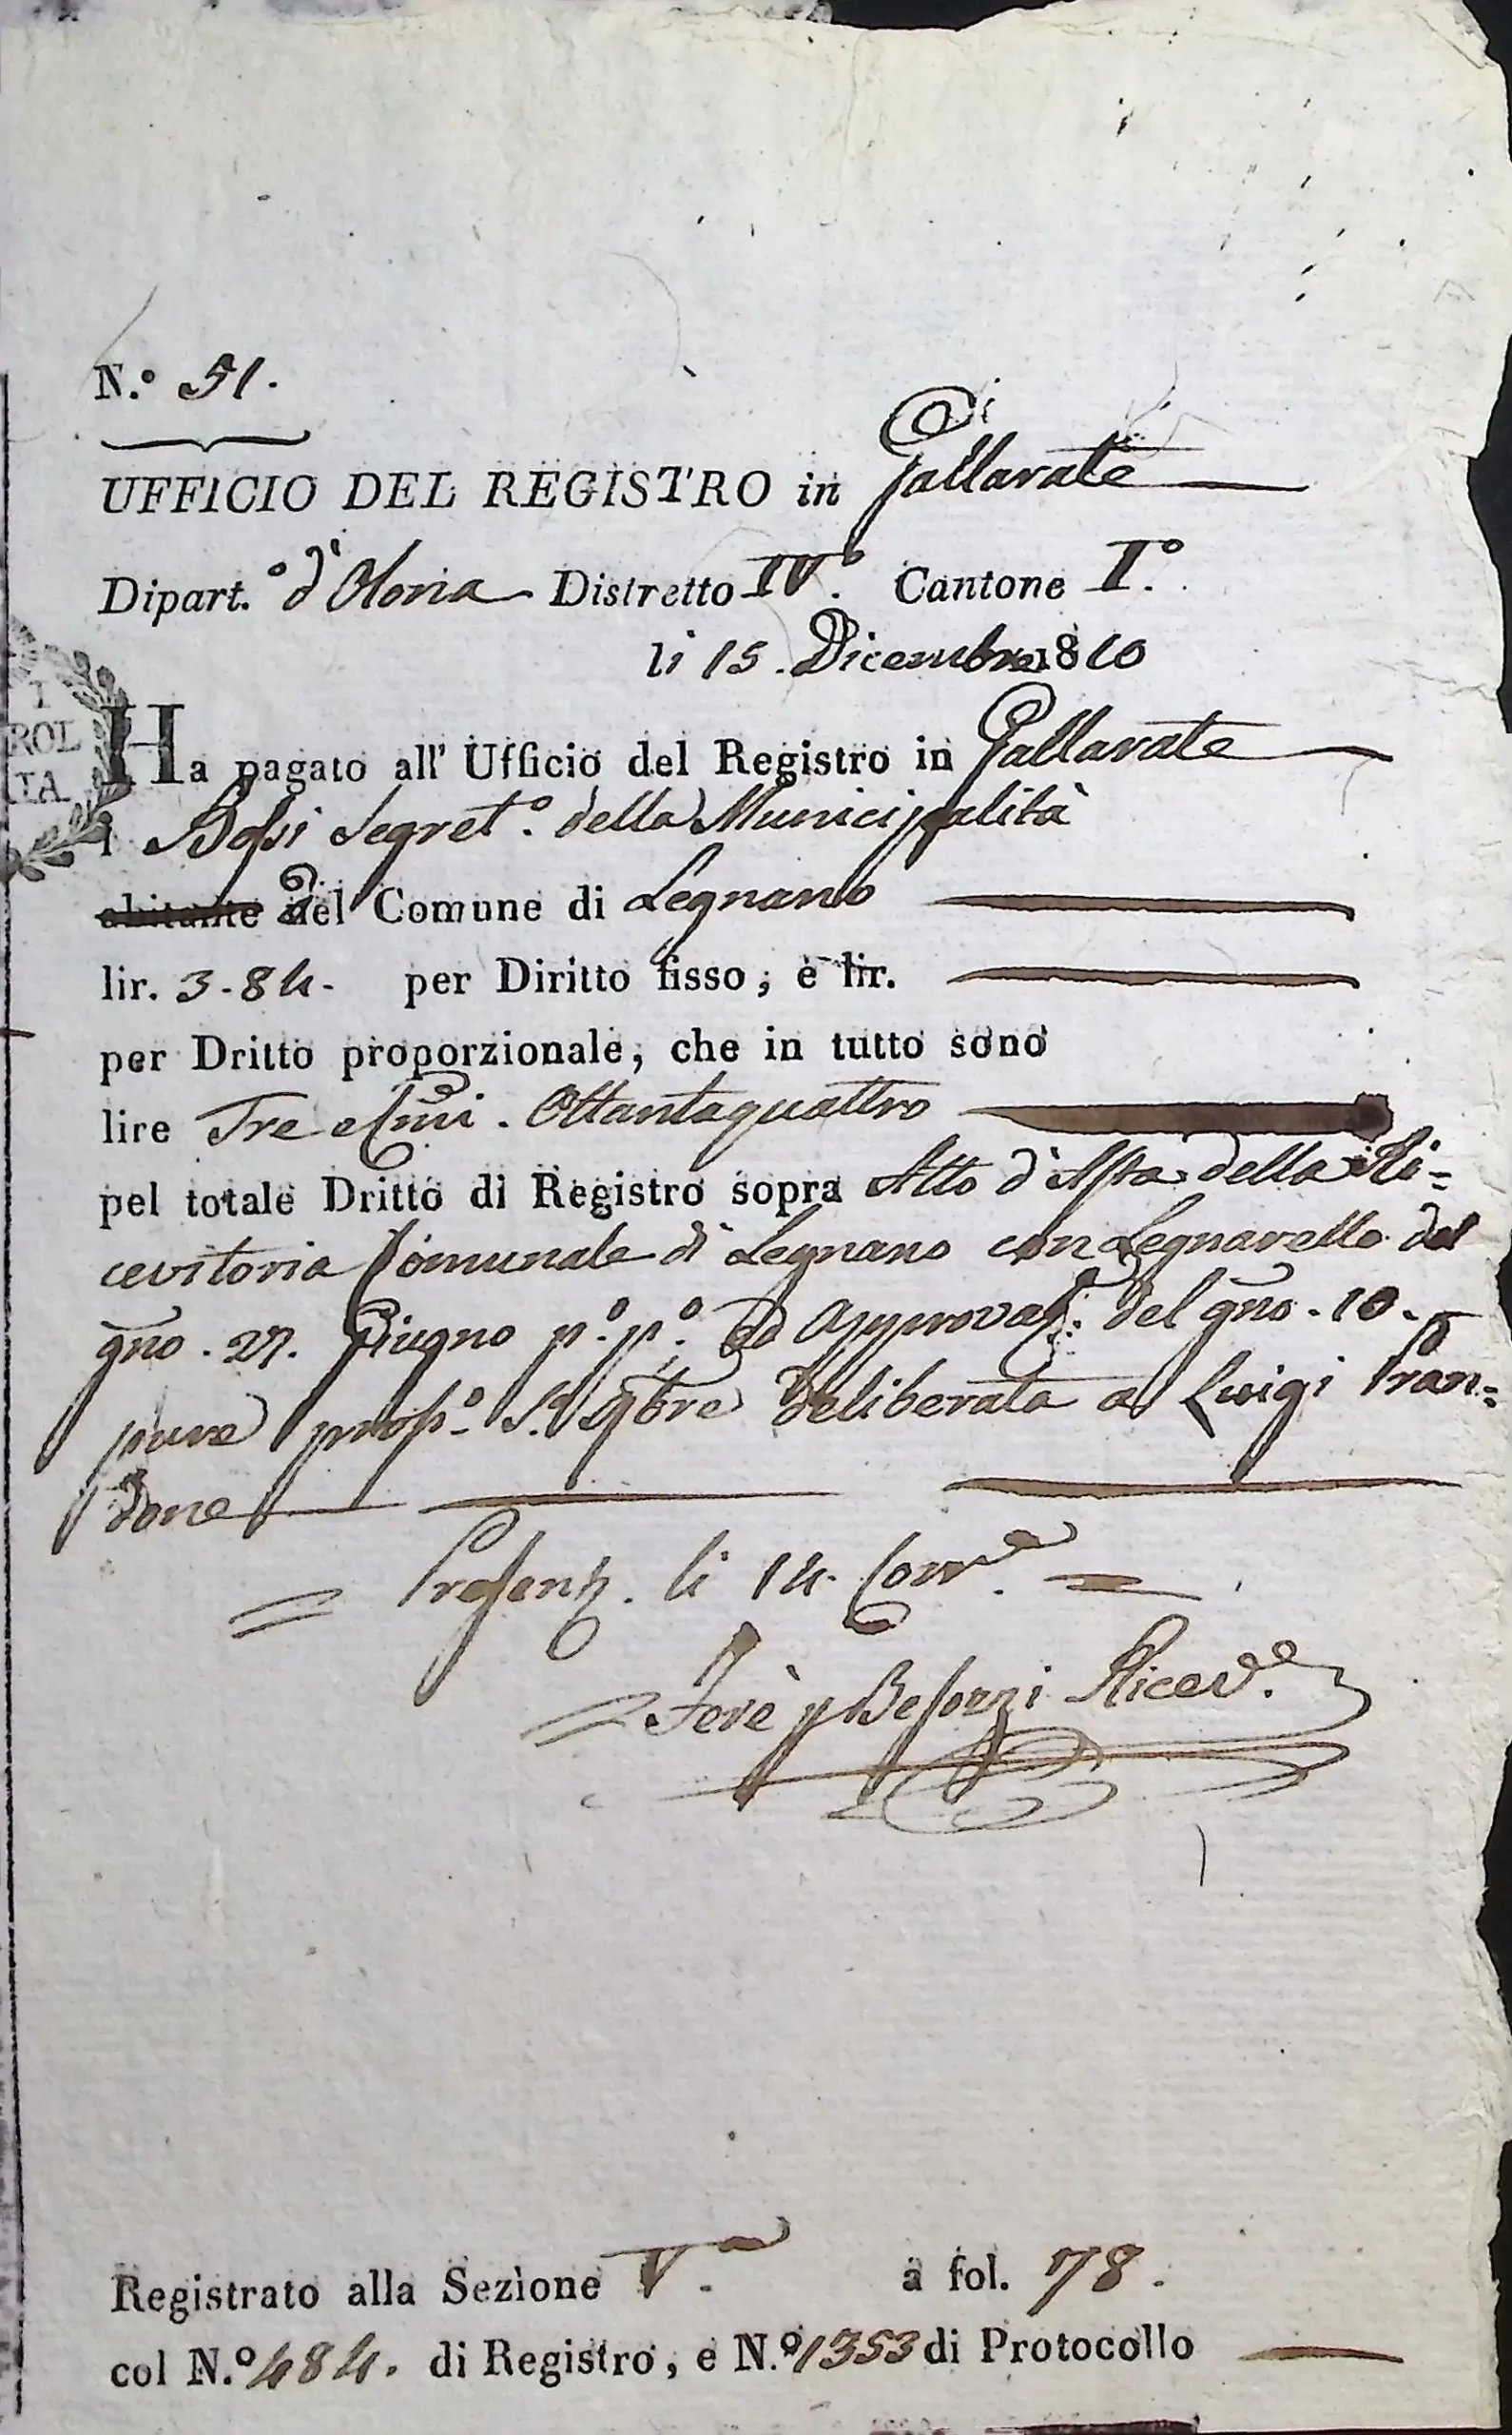 N.º 51.
Di
UFFICIO DEL REGISTRO in Gallarate
Dipart.º d'Olona Distretto IV.º Cantone I.º
li 15. Dicembre 1810
I
ROL
IA
Ha pagato all' Ufficio del Registro in Gallarate
i Bossi Segret.º della Municipalità
abitante del Comune di Legnano
lir. 3-84- per Diritto fisso; e lir.
per Dritto proporzionale, che in tutto sono
lire Tre e Cmi. Ottantaquattro
pel totale Dritto di Registro sopra Atto d'Asta della Ri=
cevitoria Comunale di Legnano con Legnarello del
gno. 27. Giugno p.º p.º ed Approvat. del gno. 10.
pure pross.º 9bre deliberata a Luigi Pran=
done
= Presenz. li 14. Corr.e =
= Ferè p Besozzi Ricev.e
Registrato alla Sezione V.a a fol. 78.
col N.º 484. di Registro, e N.º 1353 di Protocollo